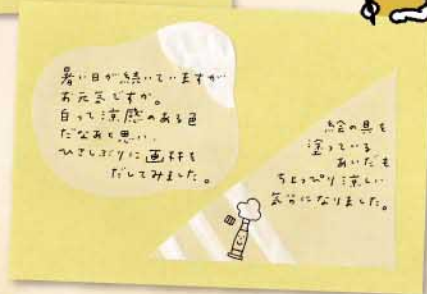 暑い日が続いていますが
お元気ですか。
白って涼感のある色
だなあと思い、
ひさしぶりに画材を
だしてみました。
絵の具を
塗っている
あいだも
ちょっぴり涼しい
気分になりました。